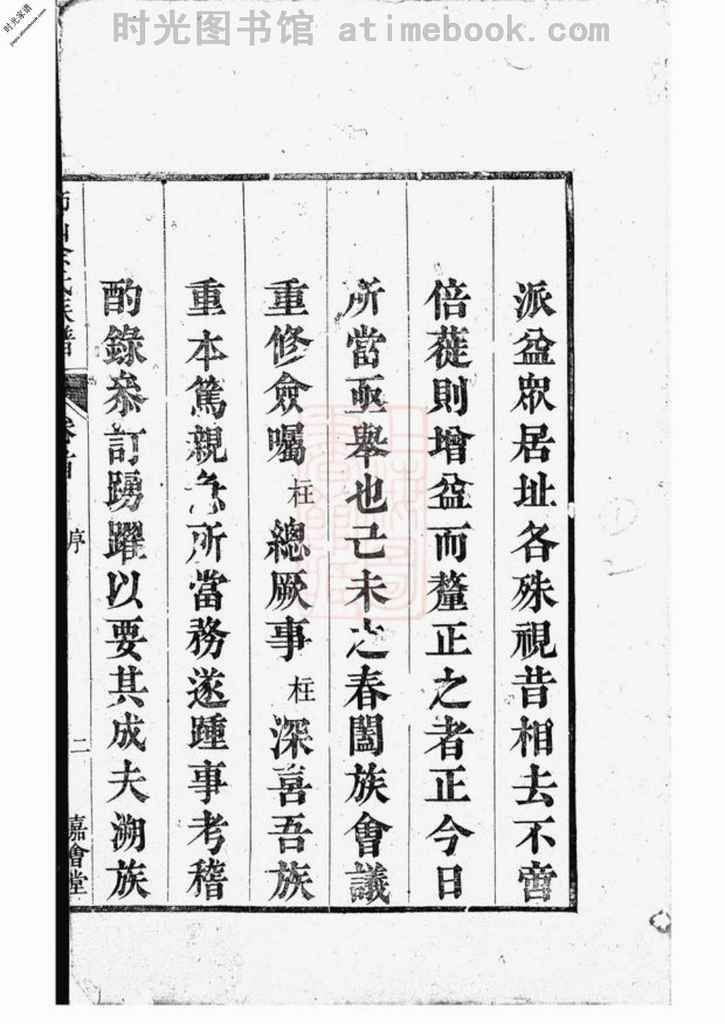 时光图书馆 atimebook.com
时光家谱
派益眾居址各殊視昔相去不啻
倍蓰則增益而釐正之者正今日
所當亟舉也己未之春闔族會議
重修僉囑柱總厥事柱深喜吾族
重本篤親急所當務遂踵事考稽
酌錄叅訂踴躍以要其成夫溯族
氏族譜
卷首
序
二
嘉會堂